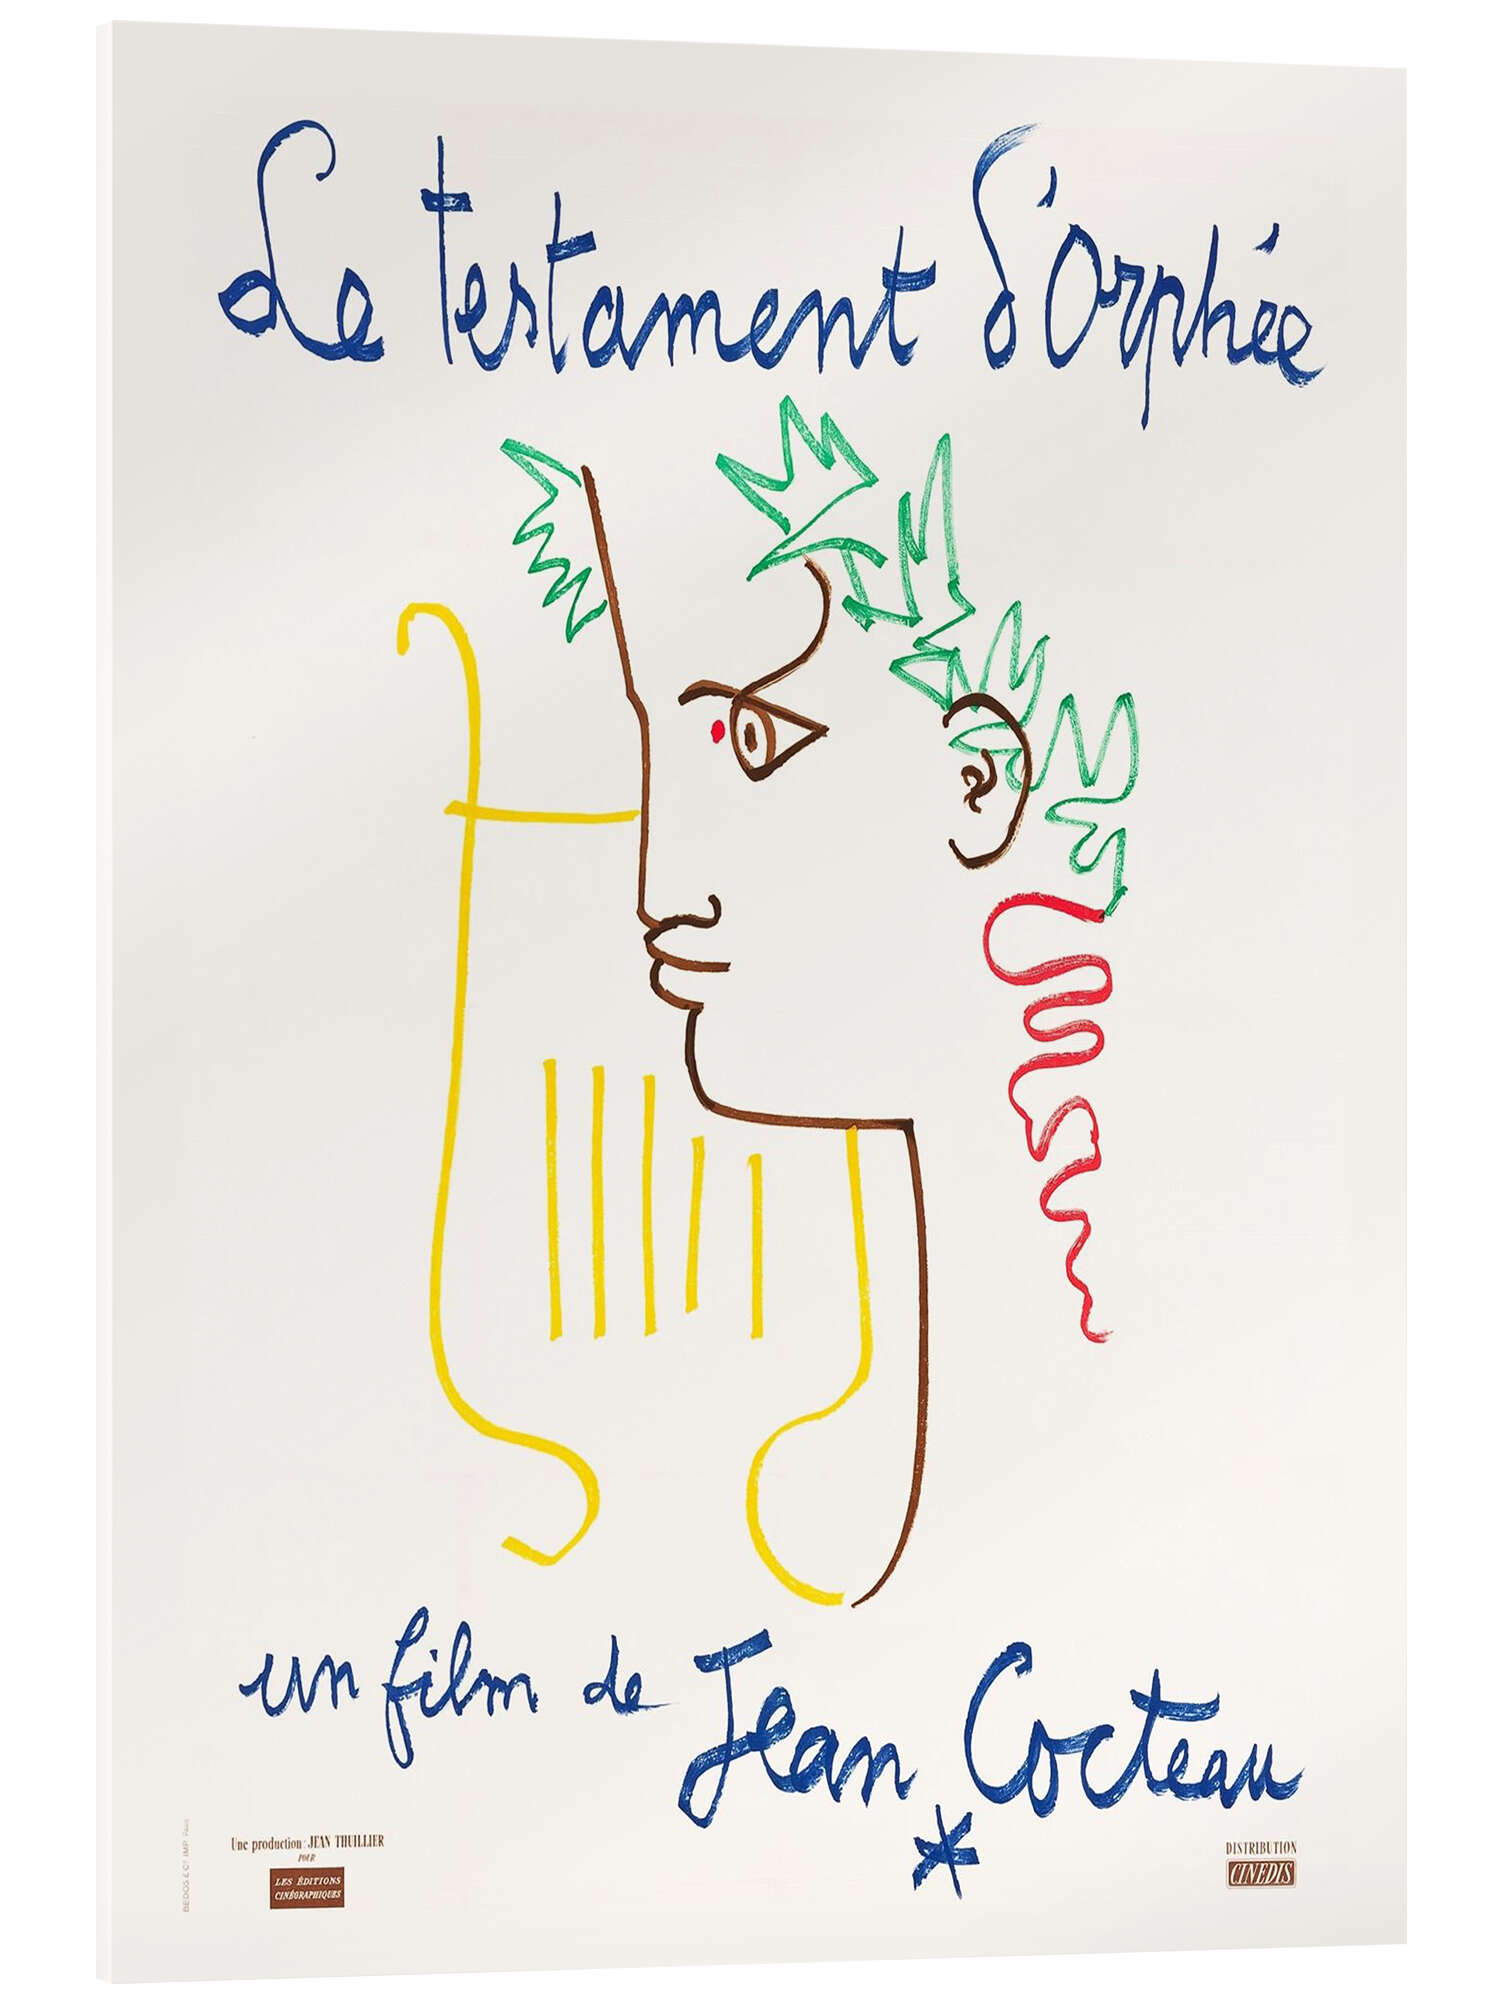 Le testament d'Orphée
un film de Jean Cocteau
*
Une production: JEAN THUILLIER
POUR
LES ÉDITIONS
CINÉGRAPHIQUES
DISTRIBUTION
CINEDIS
BEDOS & Cie IMP. Paris